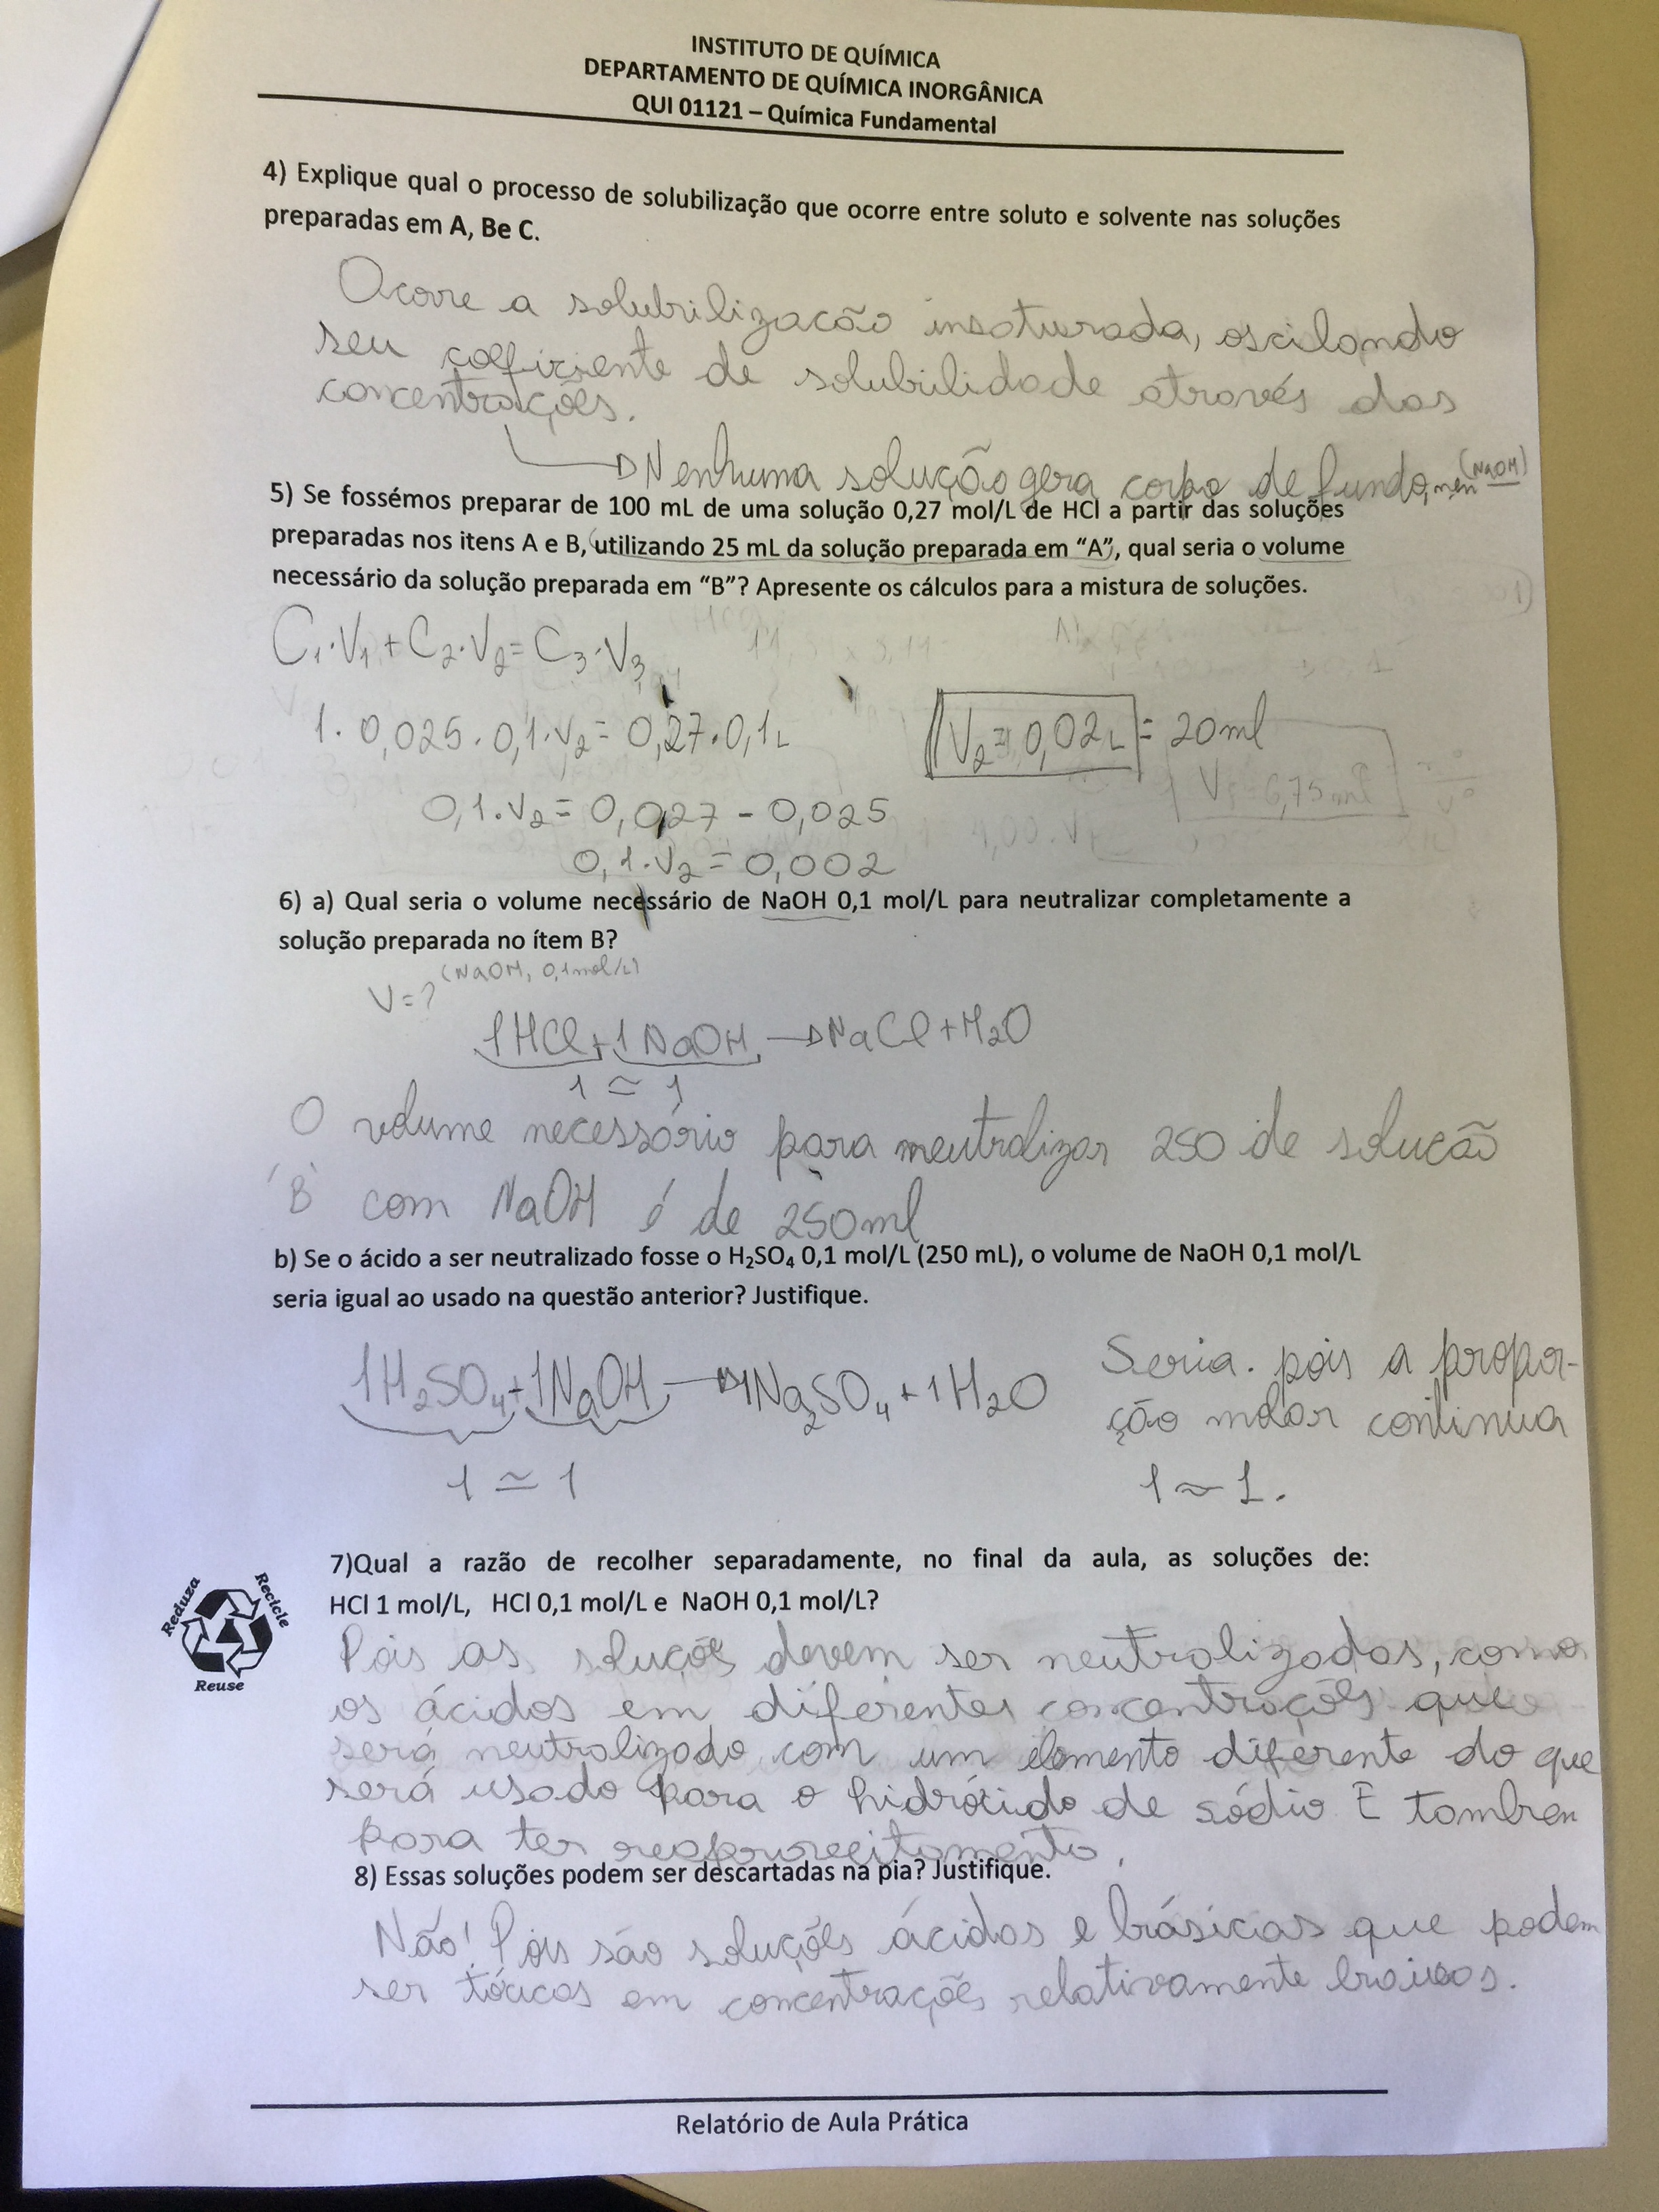 INSTITUTO DE QUÍMICA
DEPARTAMENTO DE QUÍMICA INORGÂNICA
QUI 01121 – Química Fundamental
4) Explique qual o processo de solubilização que ocorre entre soluto e solvente nas soluções
preparadas em A, Be C.
Ocorre a solubrilizacão insaturada, oscilando
seu coeficiente de solubilidade através das
concentrações.
Nenhuma solução gera corpo de fundo, nem (NaOH)
5) Se fossémos preparar de 100 mL de uma solução 0,27 mol/L de HCl a partir das soluções
preparadas nos itens A e B, utilizando 25 mL da solução preparada em “A”, qual seria o volume
necessário da solução preparada em “B”? Apresente os cálculos para a mistura de soluções.
C₁·V₁+C₂·V₂=C₃·V₃
1. 0,025 . 0,1.V₂ = 0,27.0,1L
V₂= 0,02L = 20ml
0,1.V₂ = 0,027 - 0,025
0,1.V₂ = 0,002
6) a) Qual seria o volume necessário de NaOH 0,1 mol/L para neutralizar completamente a
solução preparada no ítem B?
V=? (NaOH, 0,1mol/L)
1HCl+1NaOH → NaCl+H₂O
1 ≃ 1
O volume necessário para neutralizar 250 de solucão
'B' com NaOH é de 250ml
b) Se o ácido a ser neutralizado fosse o H₂SO₄ 0,1 mol/L (250 mL), o volume de NaOH 0,1 mol/L
seria igual ao usado na questão anterior? Justifique.
1H₂SO₄+1NaOH → 1Na₂SO₄+1H₂O
1 ≃ 1
Seria. pois a propor-
ção molar continua
1 ~ 1.
7)Qual a razão de recolher separadamente, no final da aula, as soluções de:
HCl 1 mol/L, HCl 0,1 mol/L e NaOH 0,1 mol/L?
Reduza
Recicle
Reuse
Pois as soluções devem ser neutralizadas, como
os ácidos em diferentes concentrações que
será neutralizado com um elemento diferente do que
será usado para o hidróxido de sódio E tambem
para ter reaproveitamento.
8) Essas soluções podem ser descartadas na pia? Justifique.
Não! Pois são soluções ácidas e básicas que podem
ser tóxicas em concentrações relativamente baixas.
Relatório de Aula Prática